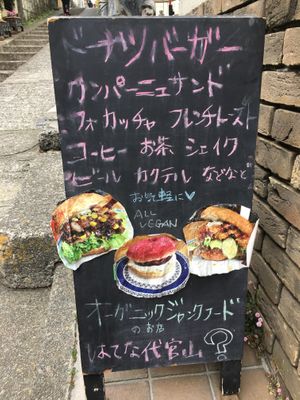 ベーカツバーガー
カンパーニュサンド
フォカッチャ フレンチトースト
コーヒー お茶 シェイク
ビール カクテル などなど
お気軽に♡
ALL
VEGAN
オーガニックジャンクフード
のお店
はてな代官山